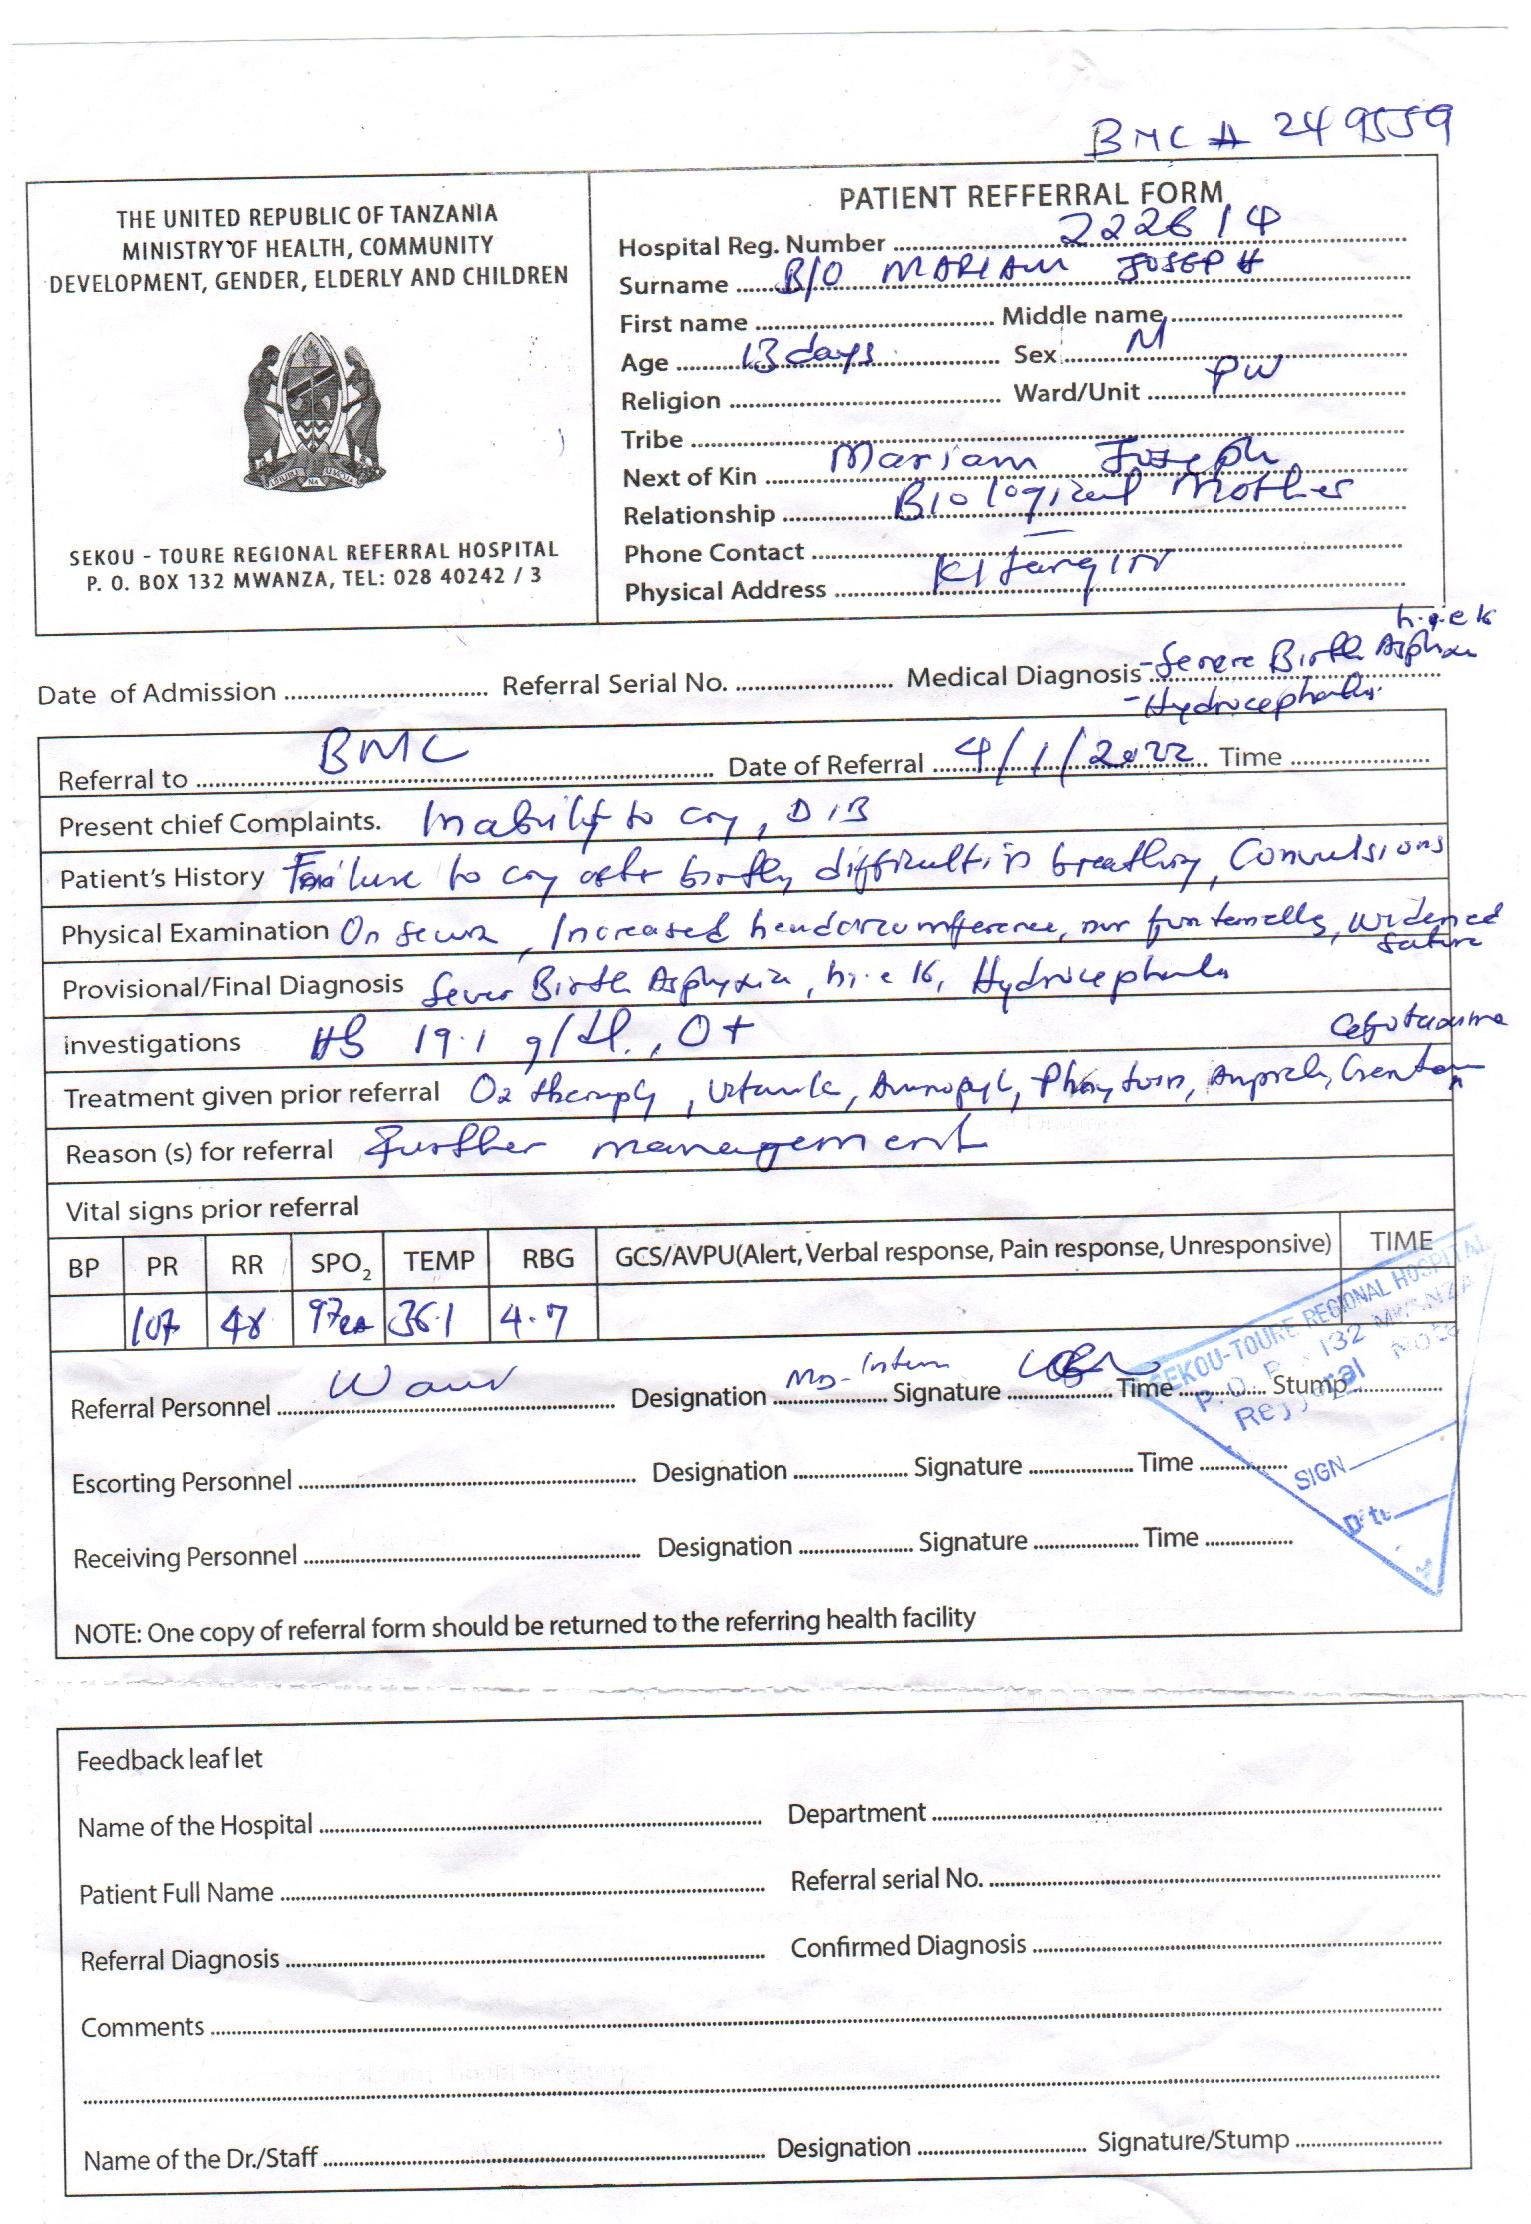 BMC # 249559
THE UNITED REPUBLIC OF TANZANIA
MINISTRY OF HEALTH, COMMUNITY
DEVELOPMENT, GENDER, ELDERLY AND CHILDREN
SEKOU - TOURE REGIONAL REFERRAL HOSPITAL
P. O. BOX 132 MWANZA, TEL: 028 40242 / 3
PATIENT REFFERRAL FORM
Hospital Reg. Number 222614
Surname B/O MARIAM JOSEPH
First name Middle name
Age 13 days Sex M
Religion Ward/Unit PW
Tribe
Next of Kin Mariam Joseph
Relationship Biological Mother
Phone Contact –
Physical Address
h.i.e 16
Date of Admission Referral Serial No. Medical Diagnosis - Severe Birth Asphxia
- Hydrocephalus.
Referral to BMC Date of Referral 4/1/2022 Time
Present chief Complaints. Inability to cry, DIB
Patient's History Failure to cry after birth, difficult in breathing, Convulsions
Physical Examination On Increased headcircumfference, fontenelle, widened
suture
Provisional/Final Diagnosis Sever Birth Asphyxia, h.i.e 16, Hydrocephalus
Investigations Hb 19.1 g/dl., O+
Cefotaxime
Treatment given prior referral O2 therapy, Phenytoin, Genta
Reason (s) for referral Further management
Vital signs prior referral
BP PR RR SPO2 TEMP RBG GCS/AVPU(Alert, Verbal response, Pain response, Unresponsive) TIME
107 48 97 36.1 4.7
Referral Personnel Designation MD-Intern Signature Time Stump
SEKOU-TOURE REGIONAL HOSPITAL
P. O. B 132 MWANZA
Referral Note
SIGN
Date
Escorting Personnel Designation Signature Time
Receiving Personnel Designation Signature Time
NOTE: One copy of referral form should be returned to the referring health facility
Feedback leaf let
Name of the Hospital Department
Patient Full Name Referral serial No.
Referral Diagnosis Confirmed Diagnosis
Comments
Name of the Dr./Staff Designation Signature/Stump